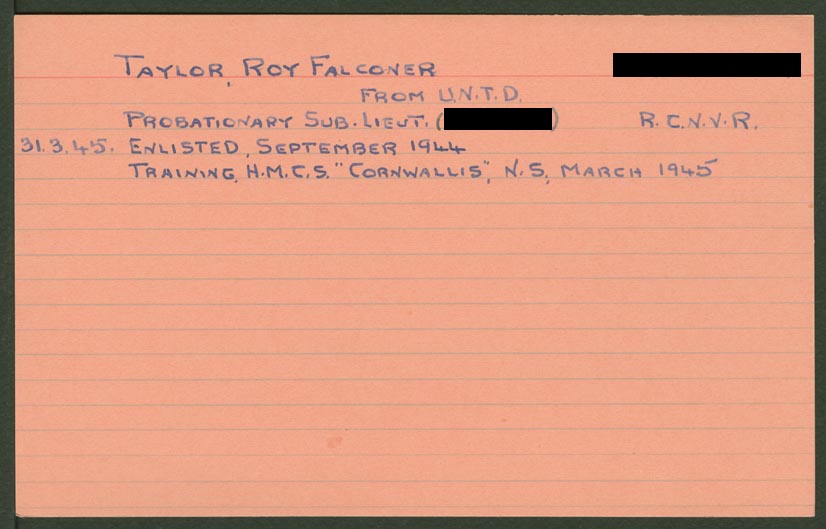 TAYLOR, ROY FALCONER
FROM U.N.T.D.
PROBATIONARY SUB. LIEUT. ( ) R.C.N.V.R.
31.3.45. ENLISTED, SEPTEMBER 1944
TRAINING, H.M.C.S. "CORNWALLIS", N.S, MARCH 1945